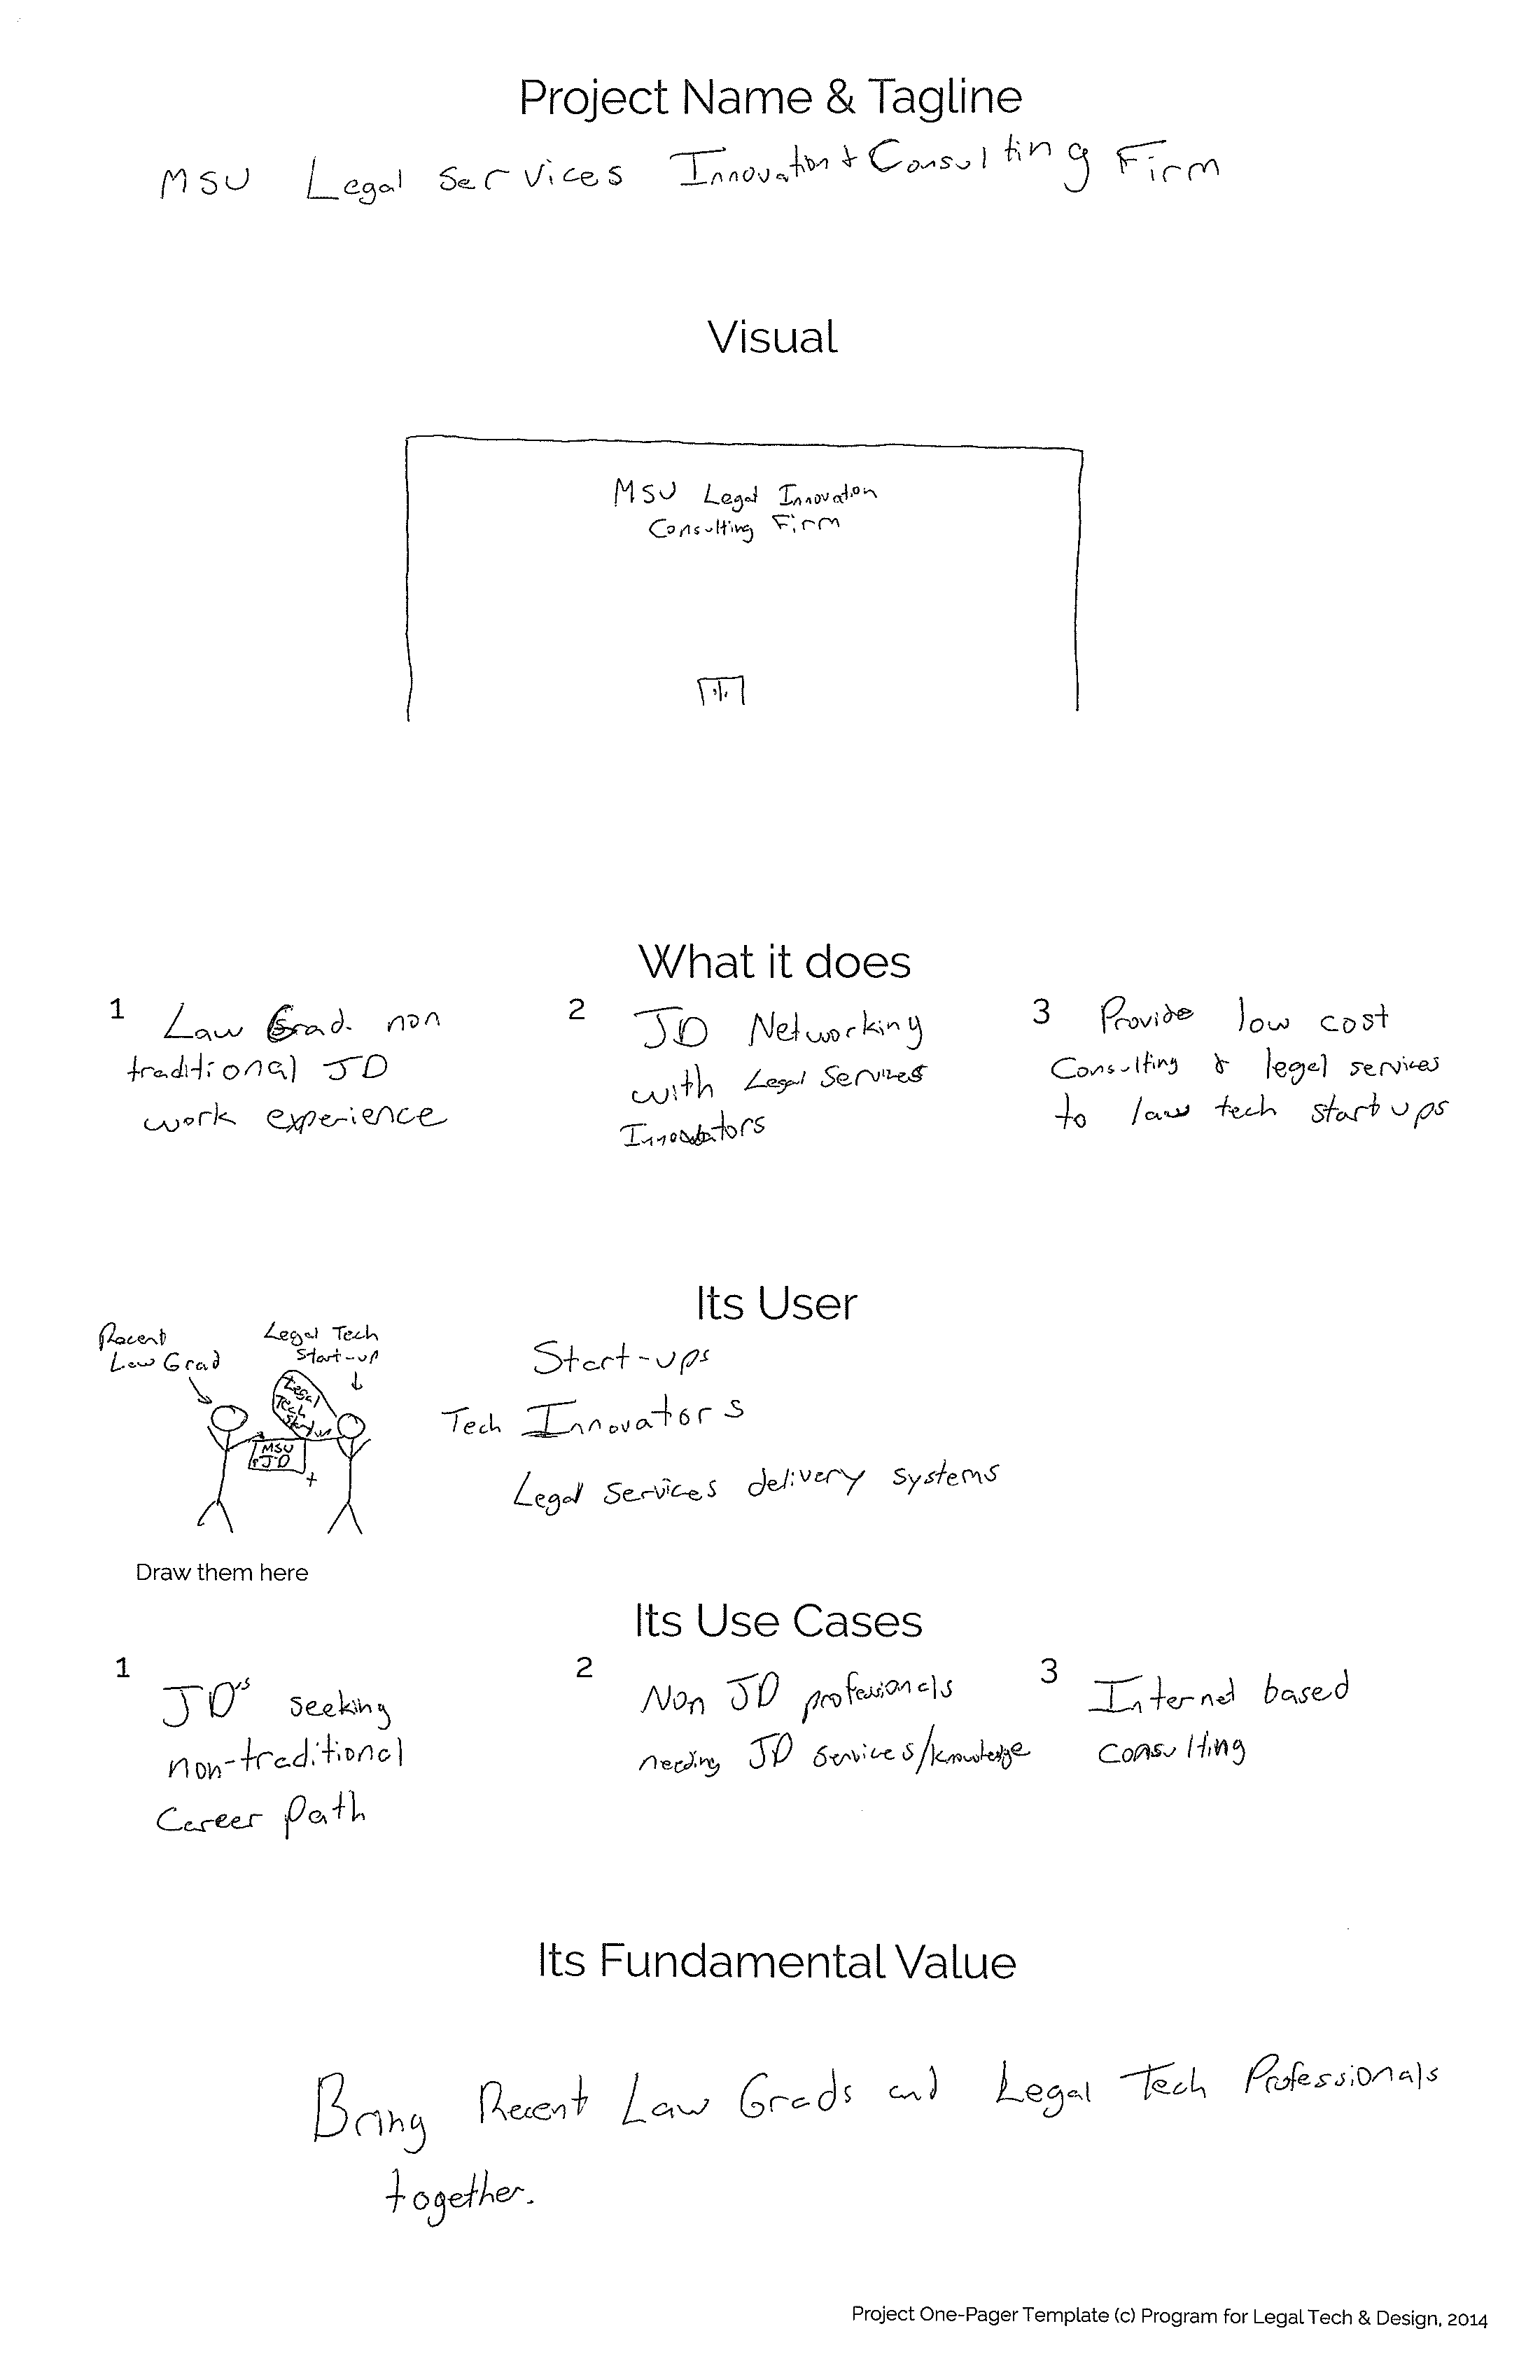 Project Name & Tagline
MSU Legal Services Innovation & Consulting Firm
Visual
MSU Legal Innovation
Consulting Firm
What it does
1 Law Grad. non
traditional JD
work experience
2 JD Networking
with Legal Services
Innovators
3 Provide low cost
Consulting & legal services
to law tech startups
Its User
Recent
Law Grad
Legal Tech
Start-up
Legal
Tech
Startup
MSU
JD
Start-ups
Tech Innovators
Legal Services delivery systems
Draw them here
Its Use Cases
1 JD's seeking
non-traditional
Career path
2 Non JD professionals
needing JD services/knowledge
3 Internet based
consulting
Its Fundamental Value
Bring Recent Law Grads and Legal Tech Professionals
together.
Project One-Pager Template (c) Program for Legal Tech & Design, 2014